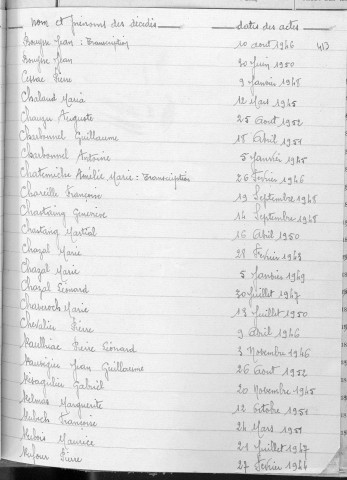 nom et prénoms des décédés dates des actes
Jean : Transcription 10 aout 1946 413
Jean 30 Juin 1950
Cessac Pierre 9 Janvier 1948
Chalaud Maria 12 Mars 1945
Chauzu Auguste 25 Aout 1952
Charbonnel Guillaume 18 Avril 1951
Charbonnel Antoine 5 Janvier 1945
Amélie Marie : Transcription 26 Février 1946
Chareille Françoise 19 Septembre 1948
Chastaing Geneviève 14 Septembre 1948
Chastang Martial 16 Avril 1950
Chazal Marie 28 Février 1943
Chazal Marie 5 Janvier 1949
Chazal Léonard 30 Juillet 1947
Marie 13 Juillet 1950
Chevalier Pierre 9 Avril 1946
Pierre Léonard 3 Novembre 1946
Jean Guillaume 26 Aout 1952
Gabriel 20 Novembre 1945
Delmas Marguerite 12 Octobre 1951
Dubech Françoise 24 Mars 1951
Dubois Maurice 21 Juillet 1947
Dufour Pierre 27 Février 1946